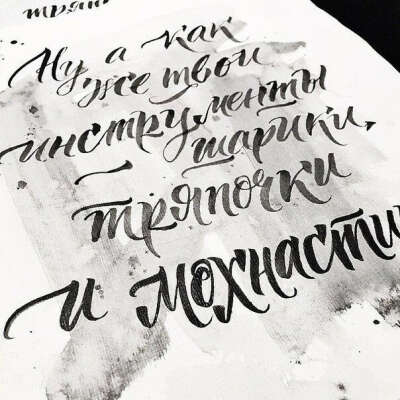 тряп
Ну а как
же твои
инструменты
шарики,
тряпочки
и мохнасти